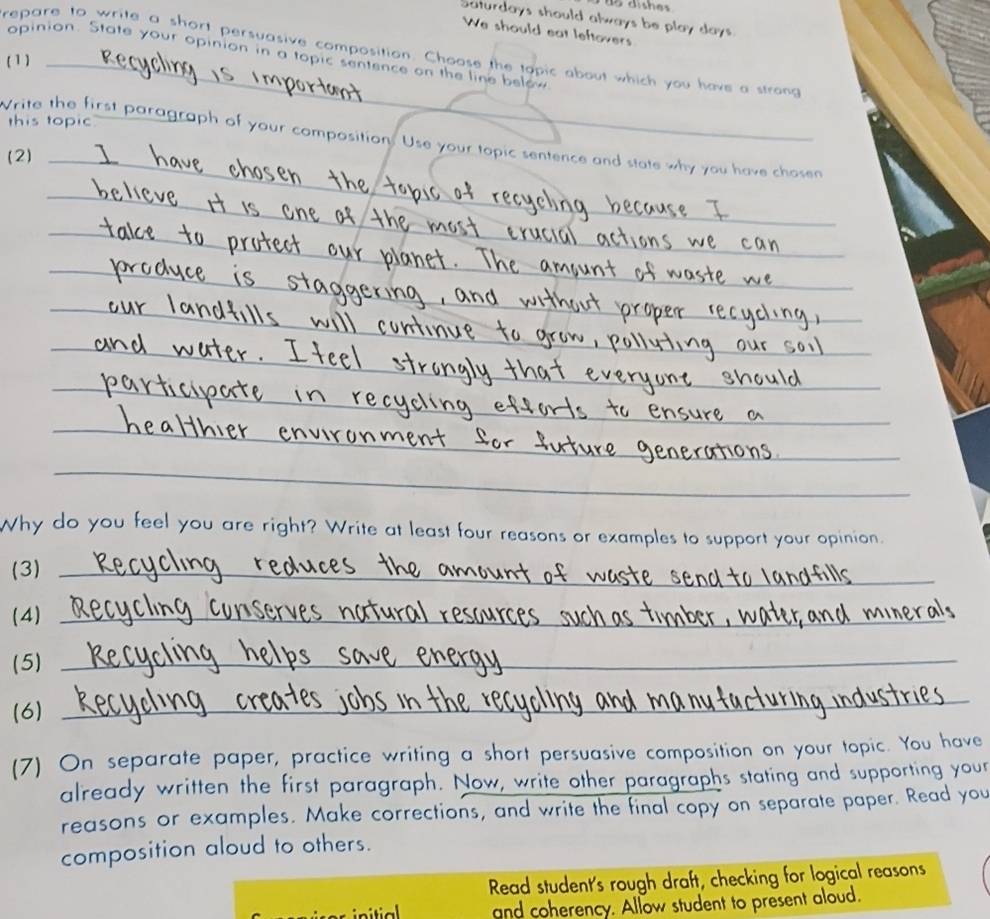 do dishes
Saturdays should always be play days.
We should eat leftovers.
repare to write a short persuasive composition. Choose the topic about which you have a strong
opinion. State your opinion in a topic sentence on the line below.
(1) Recycling is important
Write the first paragraph of your composition. Use your topic sentence and state why you have chosen
this topic.
(2) I have chosen the topic of recycling because I
believe it is one of the most crucial actions we can
take to protect our planet. The amount of waste we
produce is staggering, and without proper recycling,
our landfills will continue to grow, polluting our soil
and water. I feel strongly that everyone should
participate in recycling efforts to ensure a
healthier environment for future generations.
Why do you feel you are right? Write at least four reasons or examples to support your opinion.
(3) Recycling reduces the amount of waste send to landfills
(4) Recycling conserves natural resources such as timber, water, and minerals
(5) Recycling helps save energy
(6) Recycling creates jobs in the recycling and manufacturing industries
(7) On separate paper, practice writing a short persuasive composition on your topic. You have
already written the first paragraph. Now, write other paragraphs stating and supporting your
reasons or examples. Make corrections, and write the final copy on separate paper. Read you
composition aloud to others.
Read student's rough draft, checking for logical reasons
initial and coherency. Allow student to present aloud.